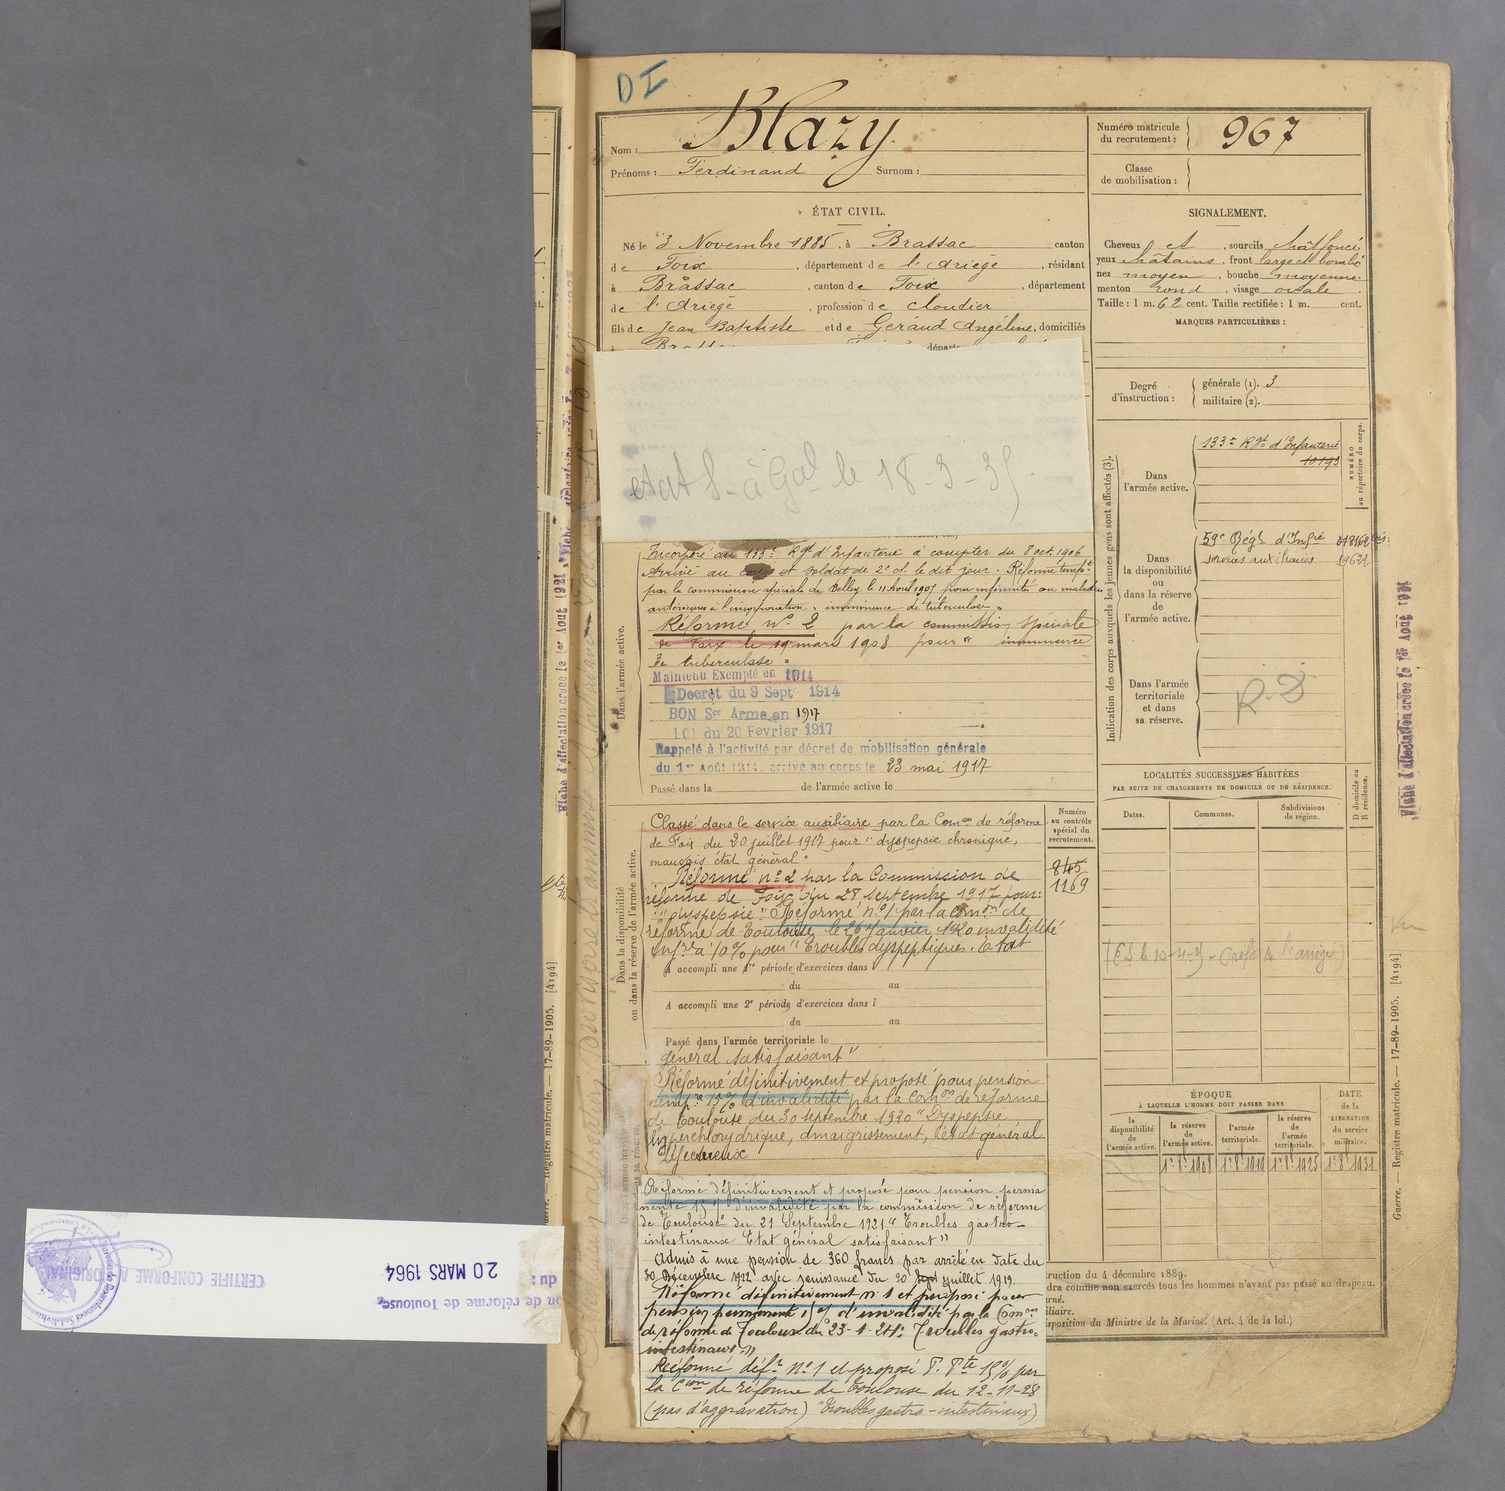 DI
Nom : Blazy
Prénoms : Ferdinand Surnom :
Numéro matricule
du recrutement : 967
Classe
de mobilisation :
ÉTAT CIVIL.
Né le 3 Novembre 1885, à Brassac canton
de Foix, département de l'Ariège, résidant
à Brassac, canton de Foix, département
de l'Ariège, profession de cloutier
fils de Jean Baptiste et de Géraud Angéline, domiciliés
SIGNALEMENT.
Cheveux et, sourcils chât foncé
yeux châtains, front large et bombé
nez moyen, bouche moyenne
menton rond, visage ovale
Taille : 1 m. 62 cent. Taille rectifiée : 1 m. cent.
MARQUES PARTICULIÈRES :
Degré
d'instruction :
générale (1). 3
militaire (2).
etat S - à Gal le 18-3-35
Indication des corps auxquels les jeunes gens sont affectés (3).
NUMÉRO
au répertoire du corps.
Dans
l'armée active.
133e Rgt d'Infanterie
10193
Dans
la disponibilité
ou
dans la réserve
de
l'armée active.
59e Régt d'Infie
services auxiliaires 19622
Dans l'armée
territoriale
et dans
sa réserve.
R.D
Dans l'armée active.
Incorporé au 133e Rgt d'Infanterie à compter du 8 oct. 1906
Arrivé au corps et soldat de 2e cl. le dit jour. Réformé tempre
par la commission spéciale de Belley le 11 Avril 1907 pour infirmités ou maladies
antérieures à l'incorporation, imminence de tuberculose.
Réformé n° 2 par la commission spéciale
de Foix le 19 mars 1908 pour " imminence
de tuberculose "
Maintenu Exempté en 1914
Décret du 9 Sept 1914
BON Sce Armé en 1917
LOI du 20 Février 1917
Rappelé à l'activité par décret de mobilisation générale
du 1er Août 1914, arrivé au corps le 23 mai 1917
Passé dans la de l'armée active le
Dans la disponibilité
ou dans la réserve de l'armée active.
Numéro
au contrôle
spécial du
recrutement.
845
1169
Classé dans le service auxiliaire par la Comon de réforme
de Foix du 20 juillet 1917 pour " dyspepsie chronique,
mauvais état général "
Réformé n° 2 par la Commission de
réforme de Foix du 28 septembre 1917 pour:
" dyspepsie " Réformé n° 1 par la Comon de
réforme de Toulouse le 26 Janvier 1920 invalidité
infre à 10% pour " Troubles dyspeptiques. Etat
A accompli une 1re période d'exercices dans
du au
A accompli une 2e période d'exercices dans l
du au
Passé dans l'armée territoriale le
général satisfaisant "
Réformé définitivement et proposé pour pension
tempre 15% d'invalidité par la Comon de réforme
de Toulouse du 30 septembre 1920 " Dyspepsie
hyperchlorydrique, amaigrissement, l'état général
défectueux
Réformé définitivement et proposé pour pension perma
nente 15% d'invalidité par la commission de réforme
de Toulouse du 21 Septembre 1921 " Troubles gastro-
intestinaux Etat général satisfaisant "
Admis à une pension de 360 francs par arrêté en date du
30 Décembre 1922 avec jouissance du 20 juillet 1919.
Réformé définitivement n° 1 et proposé pour
pension permanente 15% d'invalidité par la Comon
de réforme de Toulouse du 23-1-24: Troubles gastro-
intestinaux "
Réformé déft n° 1 et proposé P. Pte 15% par
la Cion de réforme de Toulouse du 12-11-28
(pas d'aggravation) "Troubles gastro-intestinaux)
LOCALITÉS SUCCESSIVES HABITÉES
PAR SUITE DE CHANGEMENTS DE DOMICILE OU DE RÉSIDENCE.
Dates.
Communes.
Subdivisions
de région.
D domicile ou
R résidence.
ÉPOQUE
À LAQUELLE L'HOMME DOIT PASSER DANS
la
disponibilité
de
l'armée active.
la réserve
de
l'armée active.
l'armée
territoriale.
la réserve
de
l'armée
territoriale.
DATE
de la
LIBÉRATION
du service
militaire.
1r 8e 1908
1r 8e 1919
1r 8e 1925
1r 8e 1931
ruction du 4 décembre 1889.
dra comme non exercés tous les hommes n'ayant pas passé au drapeau.
rné.
iliaire.
isposition du Ministre de la Marine. (Art. 4 de la loi.)
Guerre. — Registre matricule. — 17-89-1905. [4194]
Fiche d'affectation créée le 1er Août 1921
Registre matricule. — 17-89-1905. [4194]
Fiche d'affectation créée le 1er Août 1921
on de réforme de Toulouse,
du :
20 MARS 1964
CERTIFIÉ CONFORME À L'ORIGINAL